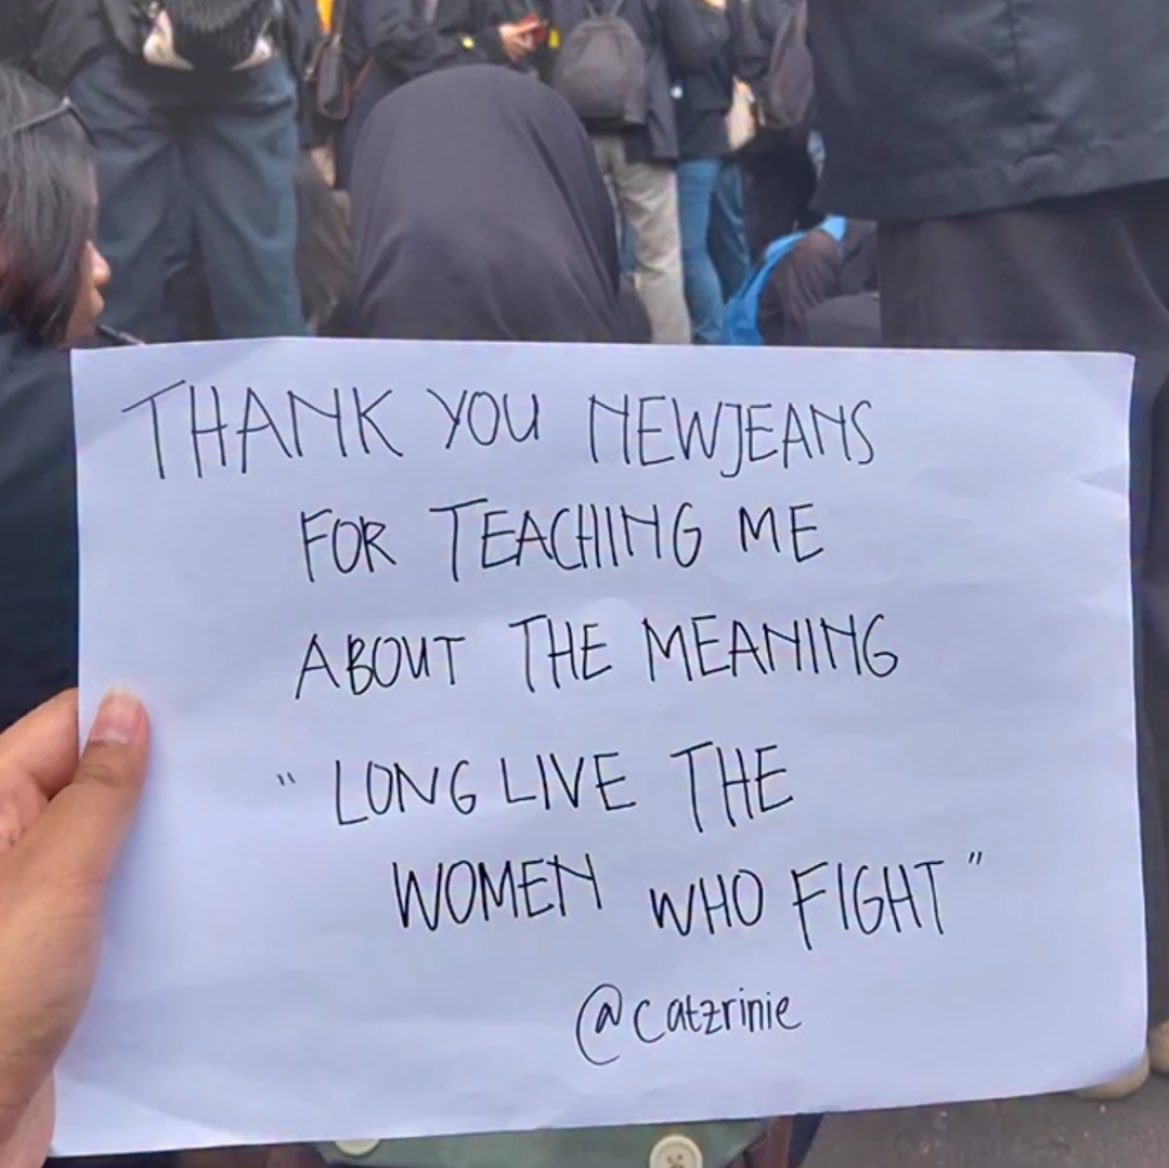 THANK YOU NEWJEANS
FOR TEACHING ME
ABOUT THE MEANING
"LONG LIVE THE
WOMEN WHO FIGHT"
@catzrinie